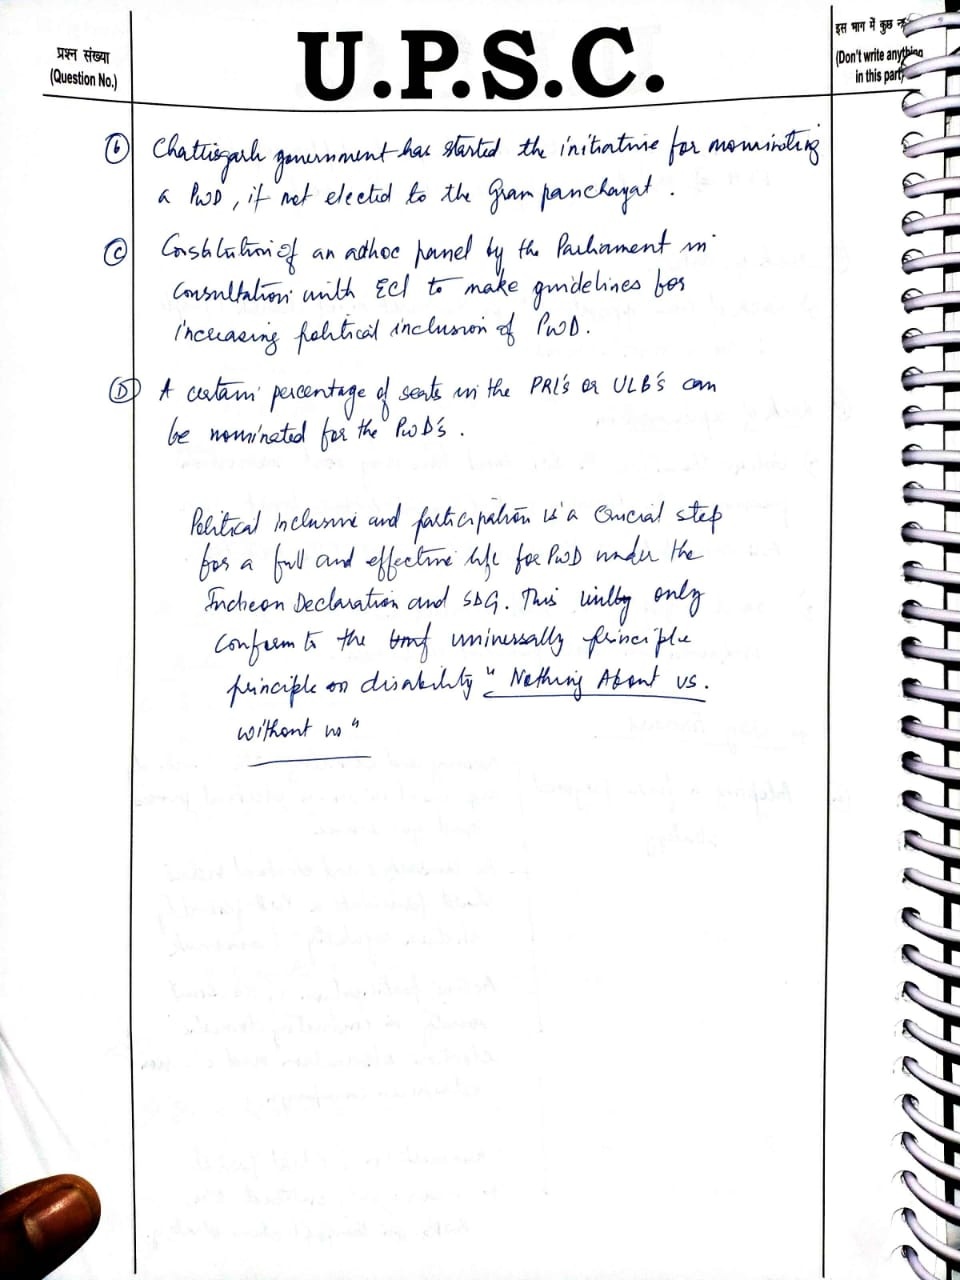 प्रश्न संख्या
(Question No.)
U.P.S.C.
इस भाग में कुछ
(Don't write anything
in this part)
(b) Chattisgarh government has started the initiative for nominating
a PWD, if not elected to the Gram panchayat.
(C) Constitution of an adhoc panel by the Parliament in
consultation with ECI to make guidelines for
increasing political inclusion of PWD.
(D) A certain percentage of seats in the PRI's or ULB's can
be nominated for the PWD's.
Political inclusive and participation is a crucial step
for a full and effective life for PWD under the
Incheon Declaration and SDG. This only
conform to the universally principle
principle on disability "Nothing About us.
without us"